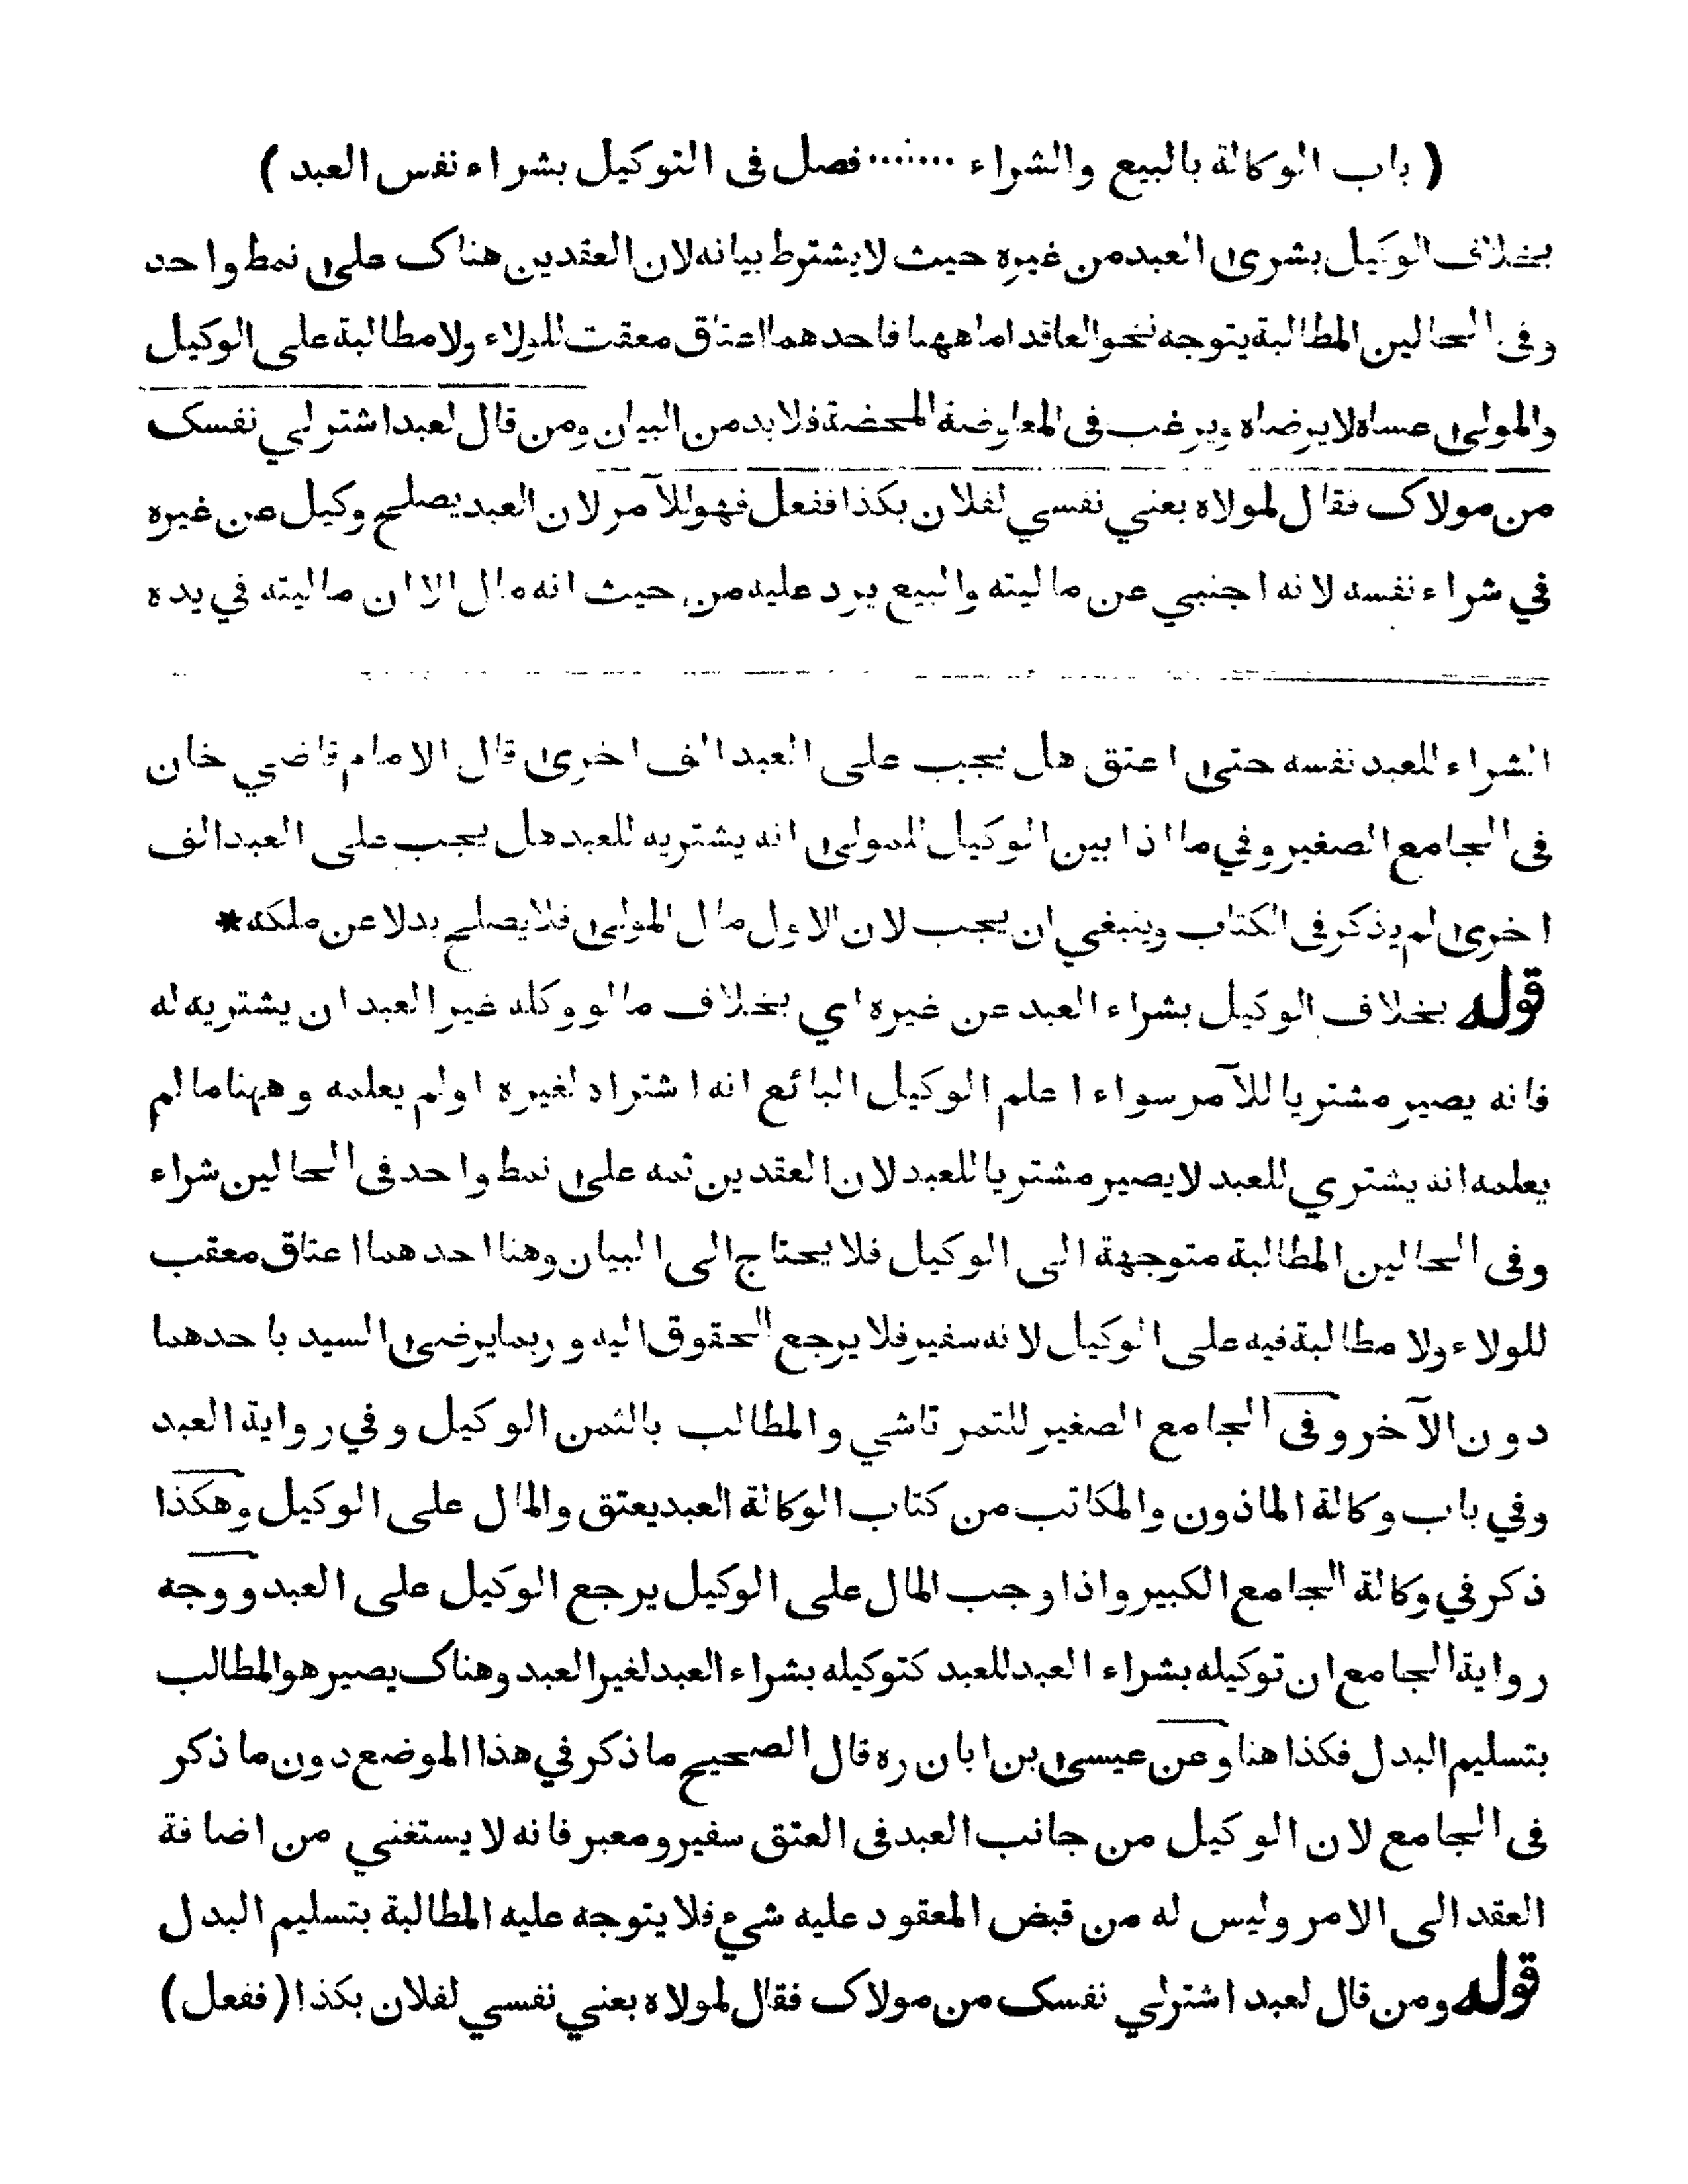 ( باب الوكالة بالبيع والشراء ········ فصل فى التوكيل بشراء نفس العبد )
بخلاف الوكيل بشرى العبد من غيره حيث لا يشترط بيانه لان العقدين هناك على نمط واحد
وفى الحالين المطالبة يتوجه نحو العاقد اما ههنا فاحدهما اعتاق معقت للولاء ولا مطالبة على الوكيل
والمولى عساه لا يرضاه ويرغب فى المعاوضة المحضة فلا بد من البيان ومن قال لعبد اشتر لي نفسك
من مولاك فقال لمولاه بعني نفسي لفلان بكذا ففعل فهو للآمر لان العبد يصلح وكيل عن غيره
في شراء نفسه لانه اجنبي عن ماليته والبيع يرد عليه من حيث انه مال الا ان ماليته في يده
الشراء للعبد نفسه حتى اعتق هل يجب على العبد الف اخرى قال الامام قاضي خان
فى الجامع الصغير وفي ما اذا بين الوكيل للمولى انه يشتريه للعبد هل يجب على العبد الف
اخرى لم يذكر فى الكتاب وينبغي ان يجب لان الاول مال المولى فلا يصلح بدلا عن ملكه *
قوله بخلاف الوكيل بشراء العبد عن غيره اي بخلاف ما لو وكله غير العبد ان يشتريه له
فانه يصير مشتريا للآمر سواء اعلم الوكيل البائع انه اشتراه لغيره او لم يعلمه وههنا ما لم
يعلمه انه يشتري للعبد لا يصير مشتريا للعبد لان العقدين ثمه على نمط واحد فى الحالين شراء
وفى الحالين المطالبة متوجهة الى الوكيل فلا يحتاج الى البيان وهنا احدهما اعتاق معقب
للولاء ولا مطالبة فيه على الوكيل لانه سفير فلا يرجع الحقوق اليه و ربما يرضى السيد باحدهما
دون الآخر وفى الجامع الصغير للتمرتاشي والمطالب بالثمن الوكيل وفي رواية العبد
وفي باب وكالة الماذون والمكاتب من كتاب الوكالة العبد يعتق والمال على الوكيل وهكذا
ذكر في وكالة الجامع الكبير واذا وجب المال على الوكيل يرجع الوكيل على العبد ووجه
رواية الجامع ان توكيله بشراء العبد للعبد كتوكيله بشراء العبد لغير العبد وهناك يصير هو المطالب
بتسليم البدل فكذا هنا وعن عيسى بن ابان ره قال الصحيح ما ذكر في هذا الموضع دون ما ذكر
فى الجامع لان الوكيل من جانب العبد فى العتق سفير ومعبر فانه لا يستغني من اضافة
العقد الى الامر وليس له من قبض المعقود عليه شيء فلا يتوجه عليه المطالبة بتسليم البدل
قوله ومن قال لعبد اشتر لي نفسك من مولاك فقال لمولاه بعني نفسي لفلان بكذا (ففعل)